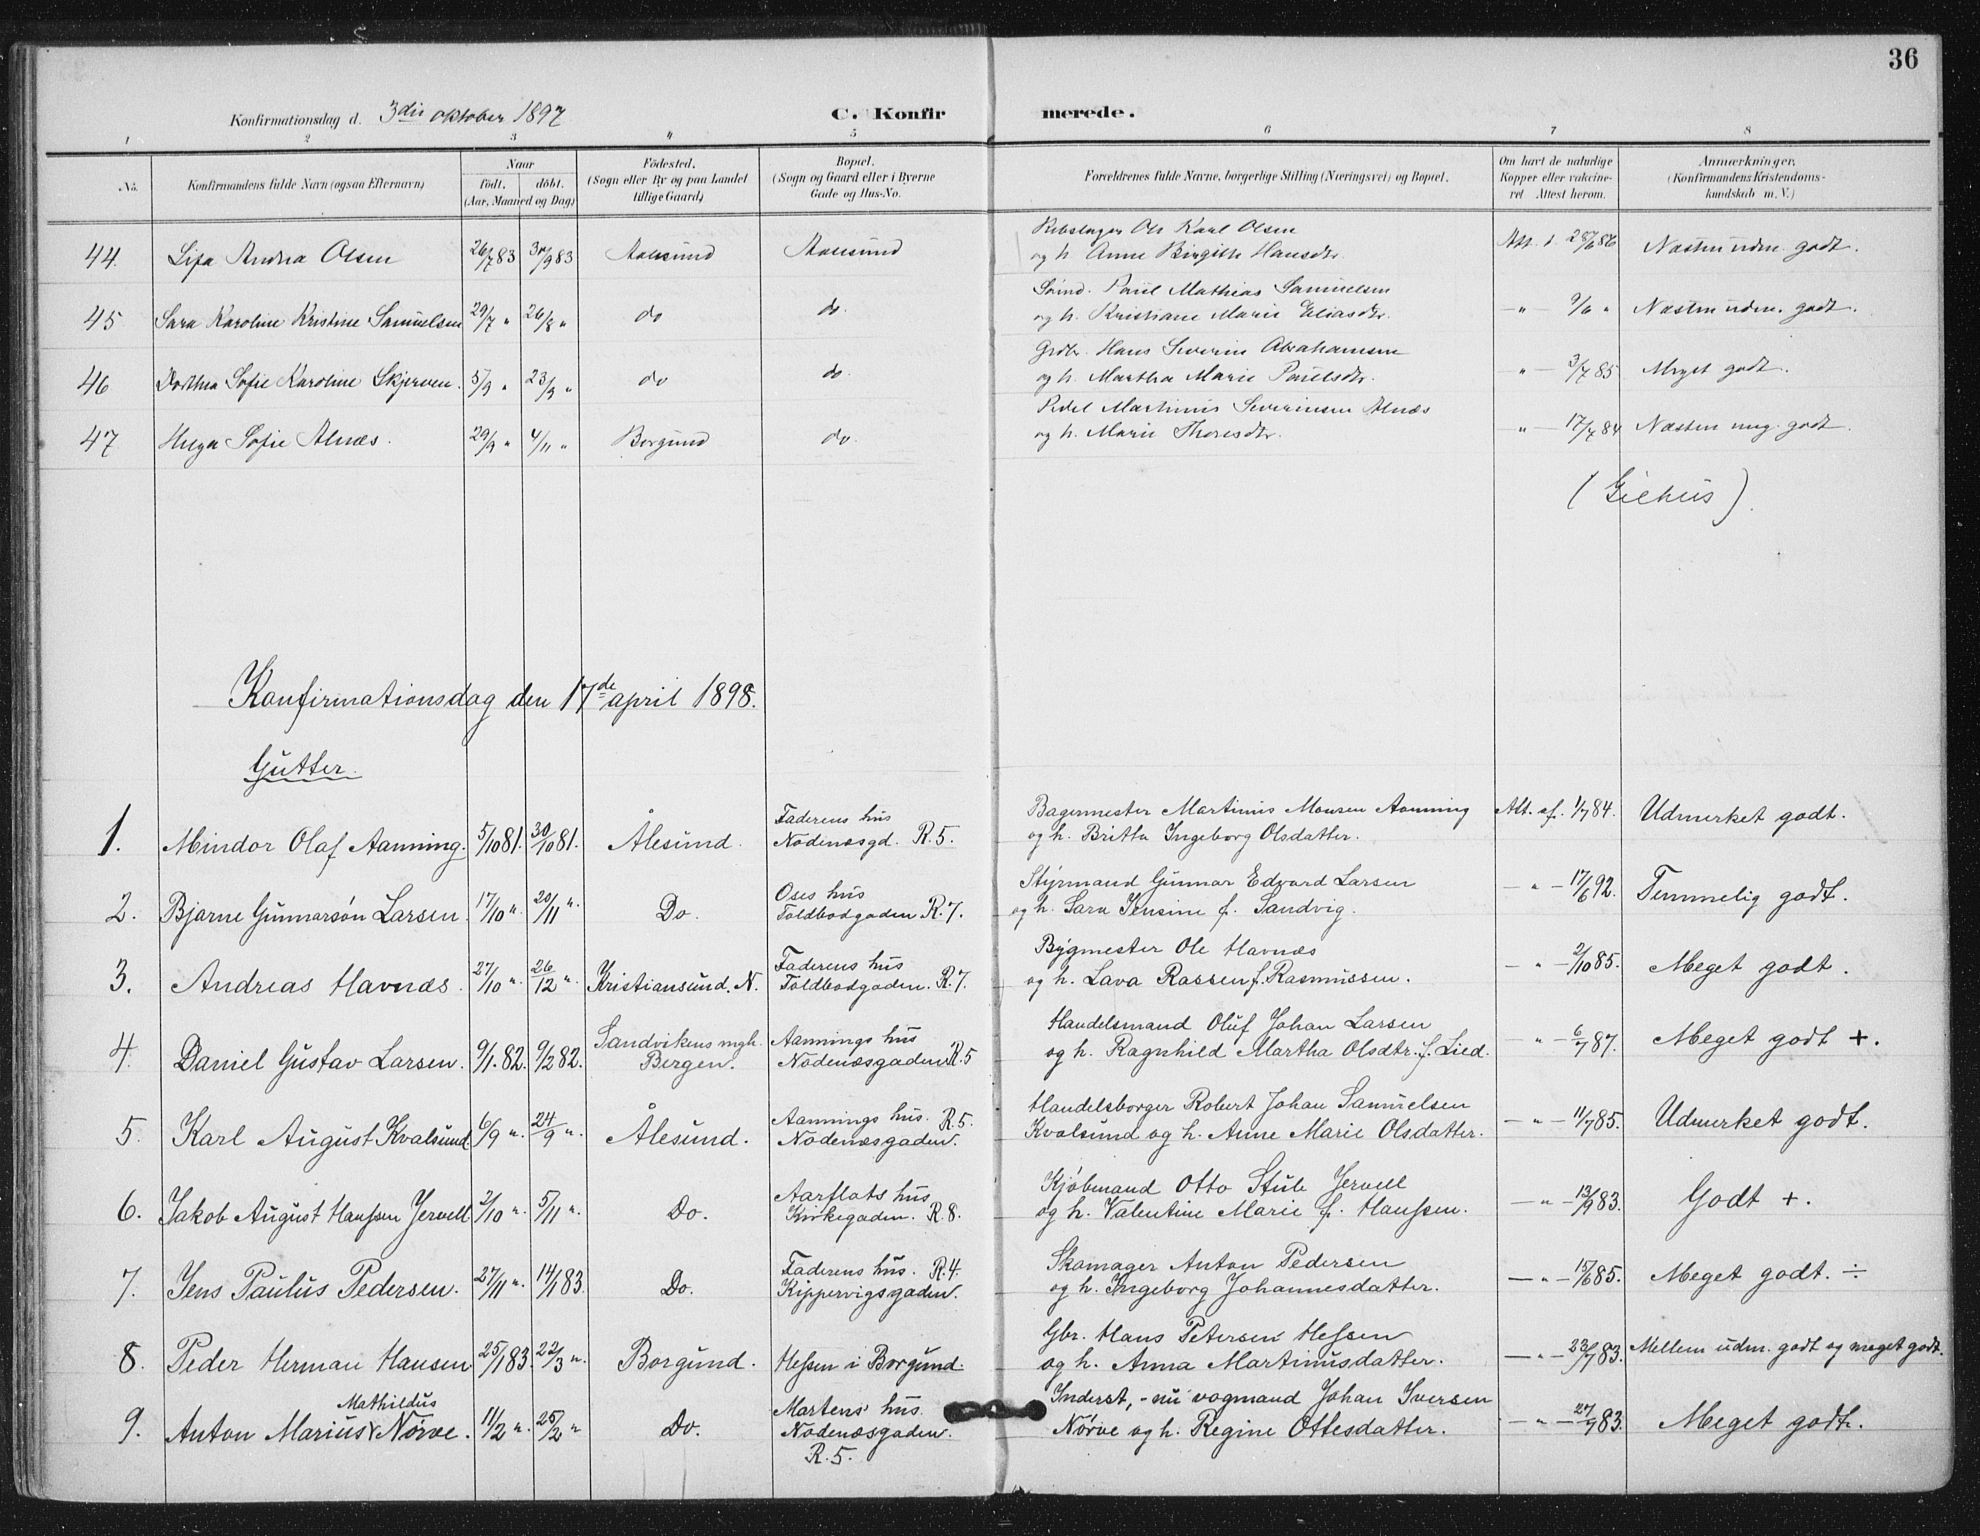 36
Konfirmationsdag d. 3die oktober 1897
C. Konfirmerede.
1 2 3 4 5 6 7 8
No. Konfirmandens fulde Navn (ogsaa Efternavn) Naar født. døbt. (Aar, Maaned og Dag) Fødested. (Sogn eller By og paa Landet tillige Gaard) Bopæl. (Sogn og Gaard eller i Byerne Gade og Hus-No. Forældrenes fulde Navne, borgerlige Stilling (Næringsvei) og Bopæl. Om havt de naturlige Kopper eller vakcineret Attest herom. Anmærkninger. (Konfirmandens Kristendomskundskab m. V.)
44. Lisa Andrea Olsen 26/7 83 30/9 83 Aalesund Aalesund Rebslager Ole Karl Olsen
og h. Anne Birgithe Hansdtr. Att. d. 28/6 86 Næsten udm. godt.
45 Sara Karoline Kristine Samuelsen 29/7 " 26/8 " do do. Søind. Paul Mathias Samuelsen
og h. Kristiane Marie Eliasdtr. — " — 9/6 " Næsten udm. godt.
46 Dorthea Sofie Karoline Skjerven. 5/9 " 23/9 " do do. Grdbr. Hans Severin Abrahamsen
og h. Martha Marie Paulsdtr. " — 3/7 85 Meget godt.
47 Huga Sofie Alnæs. 29/9 " 4/11 " Borgund do. Pedel Martinus Severinsen Alnæs
og h. Marie Thoresdtr. " — 17/7 84 Næsten meg. godt.
(Giehus).
Konfirmationsdag den 17de april 1898.
Gutter.
1. Mindor Olaf Aanning. 5/10 81. 30/10 81. Ålesund. Faderens hus
Nødenæsgd. R. 5. Bagermester Martinus Monsen Aanning
og h. Britta Ingeborg Olsdatter. Att. af. 1/7 84. Udmerket godt.
2. Bjarne Gunnarsøn Larsen. 17/10 ". 20/11 ". Do. Oses hus
Toldbodgaden R. 7. Styrmand Gunnar Edvard Larsen
og h. Sara Jensine f. Sandvig. — " — 17/6 92. Temmelig godt.
3. Andreas Havnæs. 27/10 ". 26/12 ". Kristiansund. N. Faderens hus
Toldbodgaden. R. 7. Bygmester Ole Havnæs
og h. Lava Rassen f. Rasmussen. — " — 2/10 85. Meget godt.
4. Daniel Gustav Larsen. 9/1. 82. 9/2 82. Sandvikens mgh.
Bergen. Aannings hus
Nødenæsgaden R. 5 Handelsmand Oluf Johan Larsen
og h. Ragnhild Martha Olsdtr. f. Lied. — " — 6/7 87. Meget godt +.
5. Karl August Kvalsund 6/9 ". 24/9 ". Ålesund. Aannings hus. R. 5.
Nødenæsgaden. Handelsborger Robert Johan Samuelsen
Kvalsund og h. Anne Marie Olsdatter. — " — 11/7 85. Udmerket godt.
6. Jakob August Hanssen Jervell 2/10 ". 5/11 ". Do. Aarflots hus
Kirkegaden. R. 8. Kjøbmand Otto Stub Jervell
og h. Valentine Marie f. Hanssen. — " — 13/9 83. Godt +.
7. Jens Paulus Pedersen. 27/11 ". 14/1 83. Do. Faderens hus. R. 4.
Kippervigsgaden. Skomager Anton Pedersen
og h. Ingeborg Johannesdatter. — " — 15/6 85. Meget godt. ÷
8. Peder Herman Hansen 25/1 83. 22/3 ". Borgund. Hessen i Borgund. Gbr. Hans Petersen Hessen
og h. Anna Martinusdatter. — " — 23/7 83. Mellem udm. godt og meget godt.
9. Anton Marius Mathildus Nørve. 11/2 ". 25/2 " Do. Martens' hus.
Nødenæsgaden.
R. 5. Inderst, - nu vogmand Johan Iversen
Nørve og h. Regine Ottesdatter. — " — 27/9 83. Meget godt.